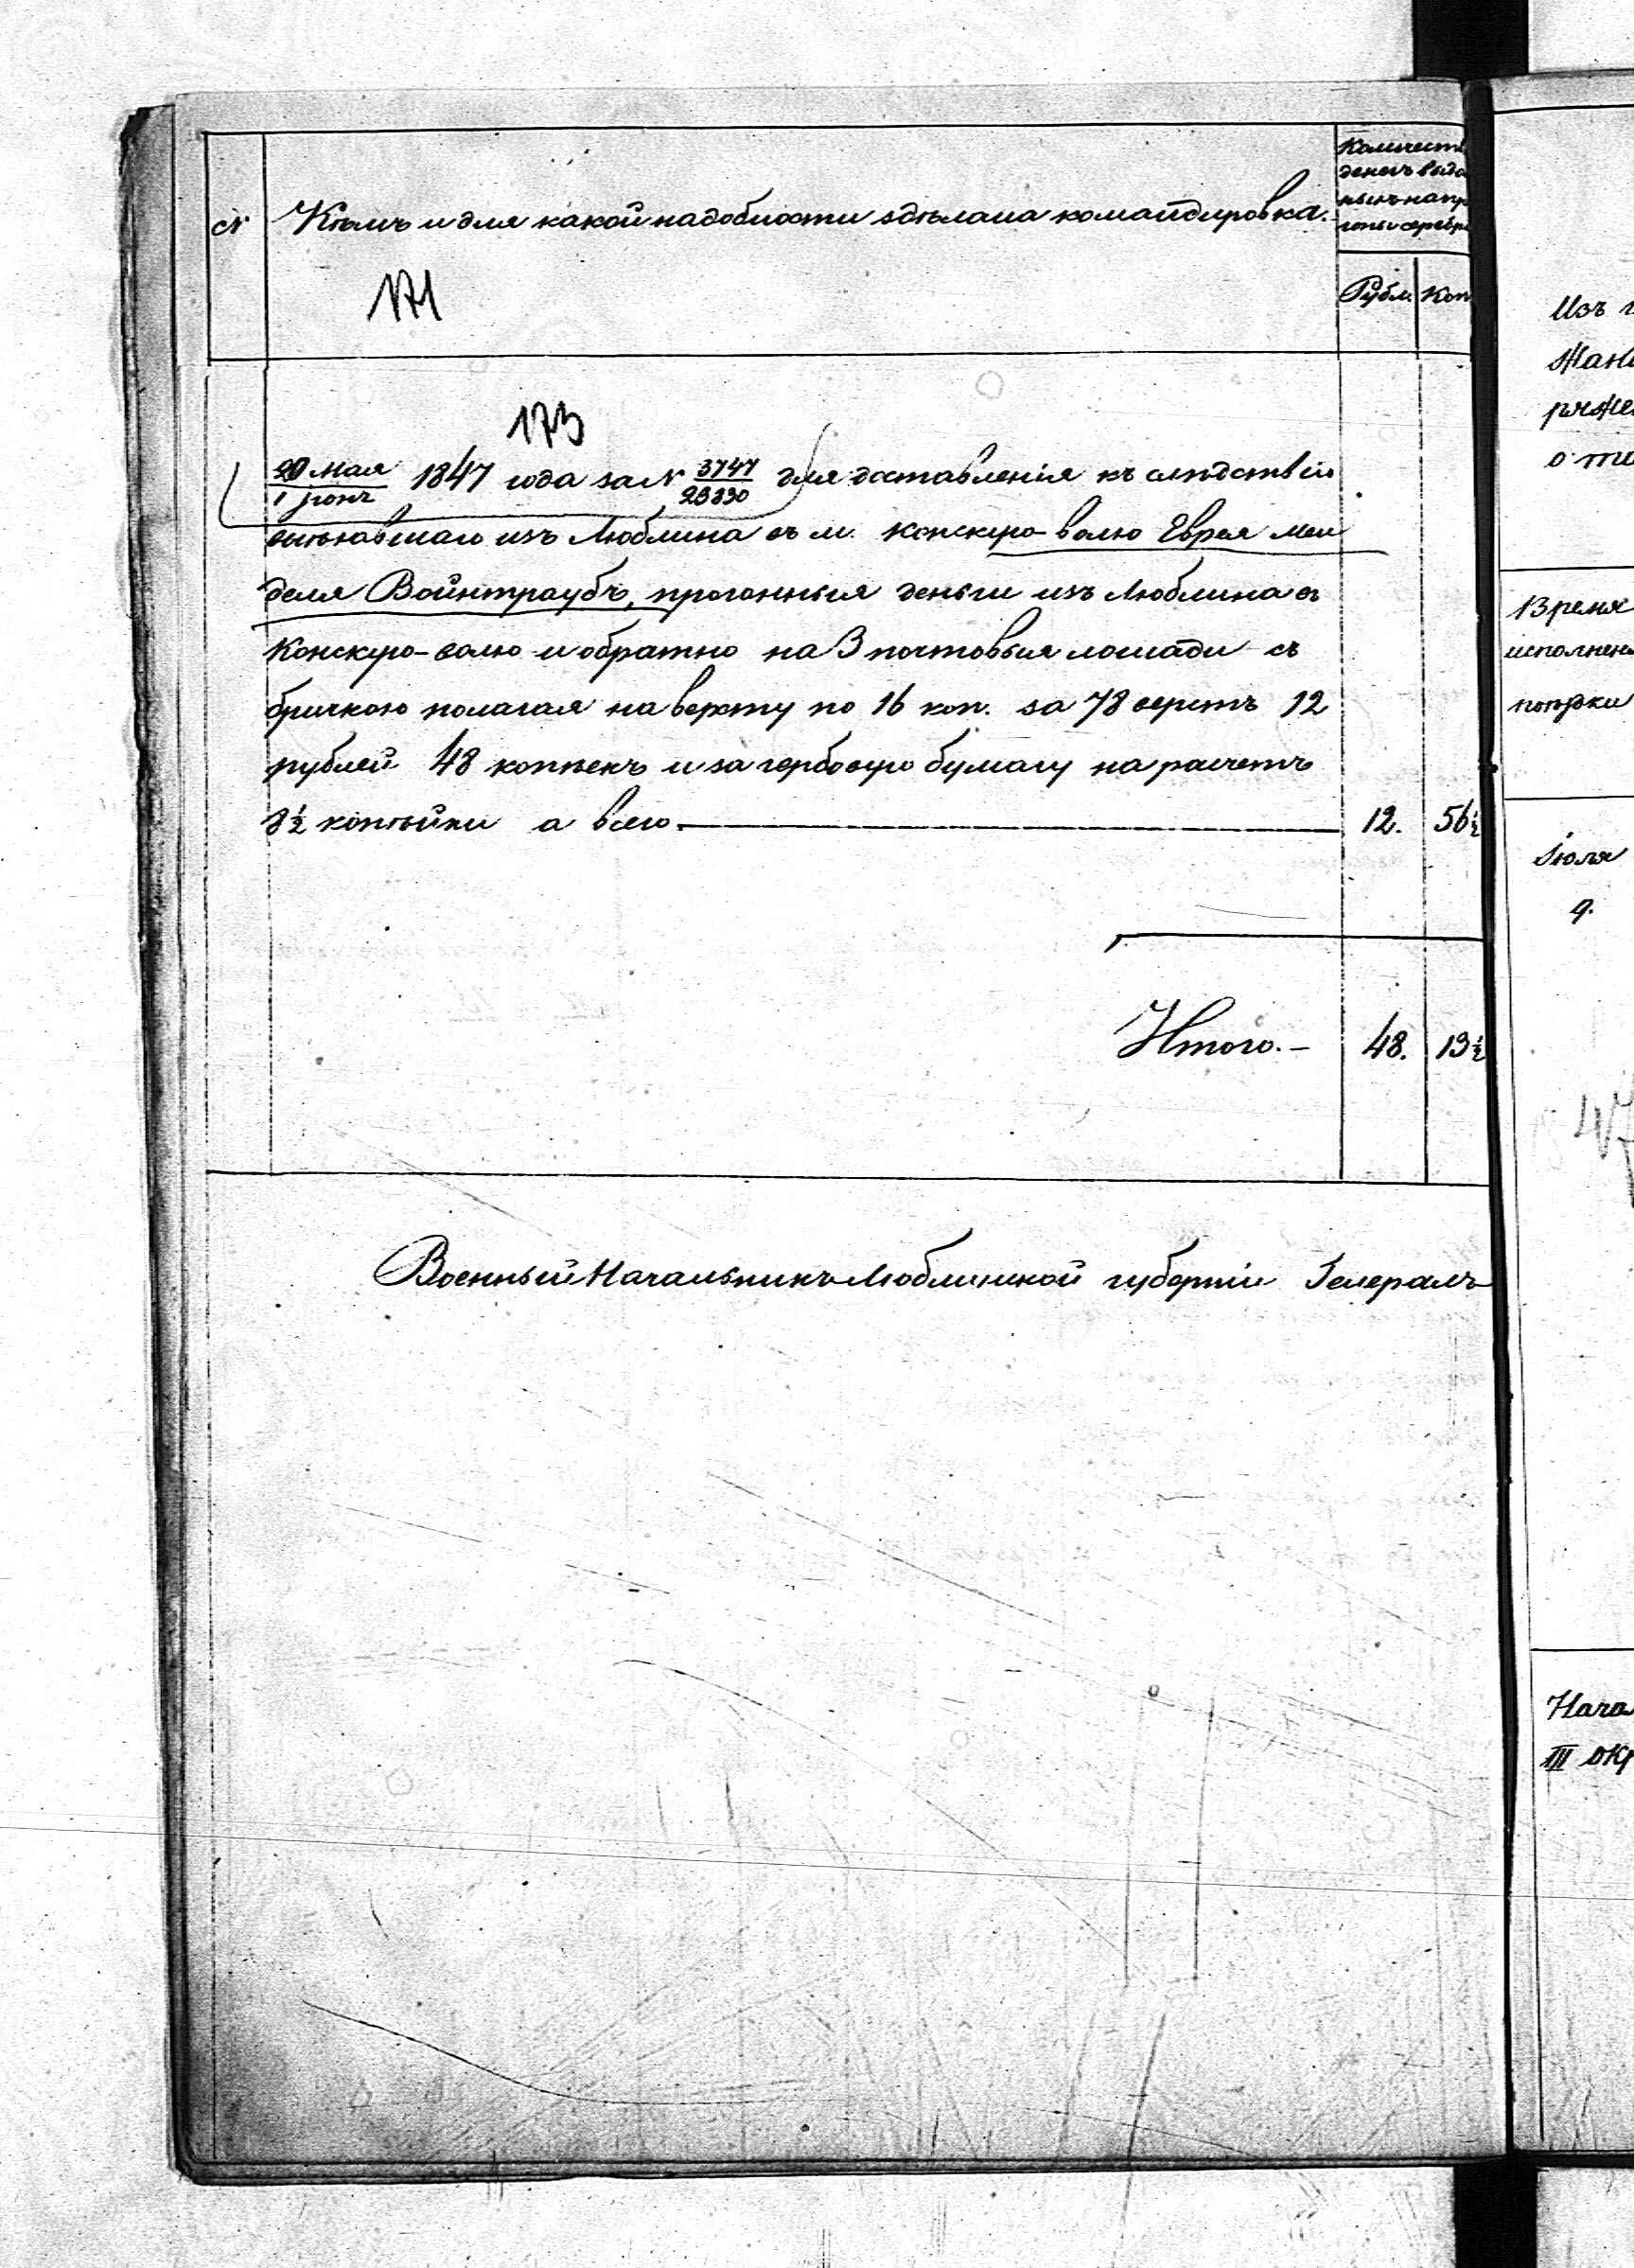 № Кѣмъ и для какой надобности здѣлана командировка.
Количест
денегъ выда
ныхъ на пр
гоны сереб
Рубл. Коп
171
173
20 Мая / 1 Іюня 1847 года за № 3747 / 23830 для доставленія къ слѣдствію
бѣжавшаго изъ Люблина въ м. Конскую-волю Еврея Мен
деля Войнтраубъ, прогонныя деньги изъ Люблина въ
Конскую-волю и обратно на 3 почтовыя лошади съ
бричкою полагая на версту по 16 коп. за 78 верстъ 12
рублей 48 копѣекъ и за гербовую бумагу на расчетъ
8½ копѣйки а всего 12. 56½
Итого.- 48. 13½
Военный Начальникъ Люблинской губерніи Генералъ
Изъ
о
Время
исполнен
поѣздки
Іюля
9.
Нача
III Окр